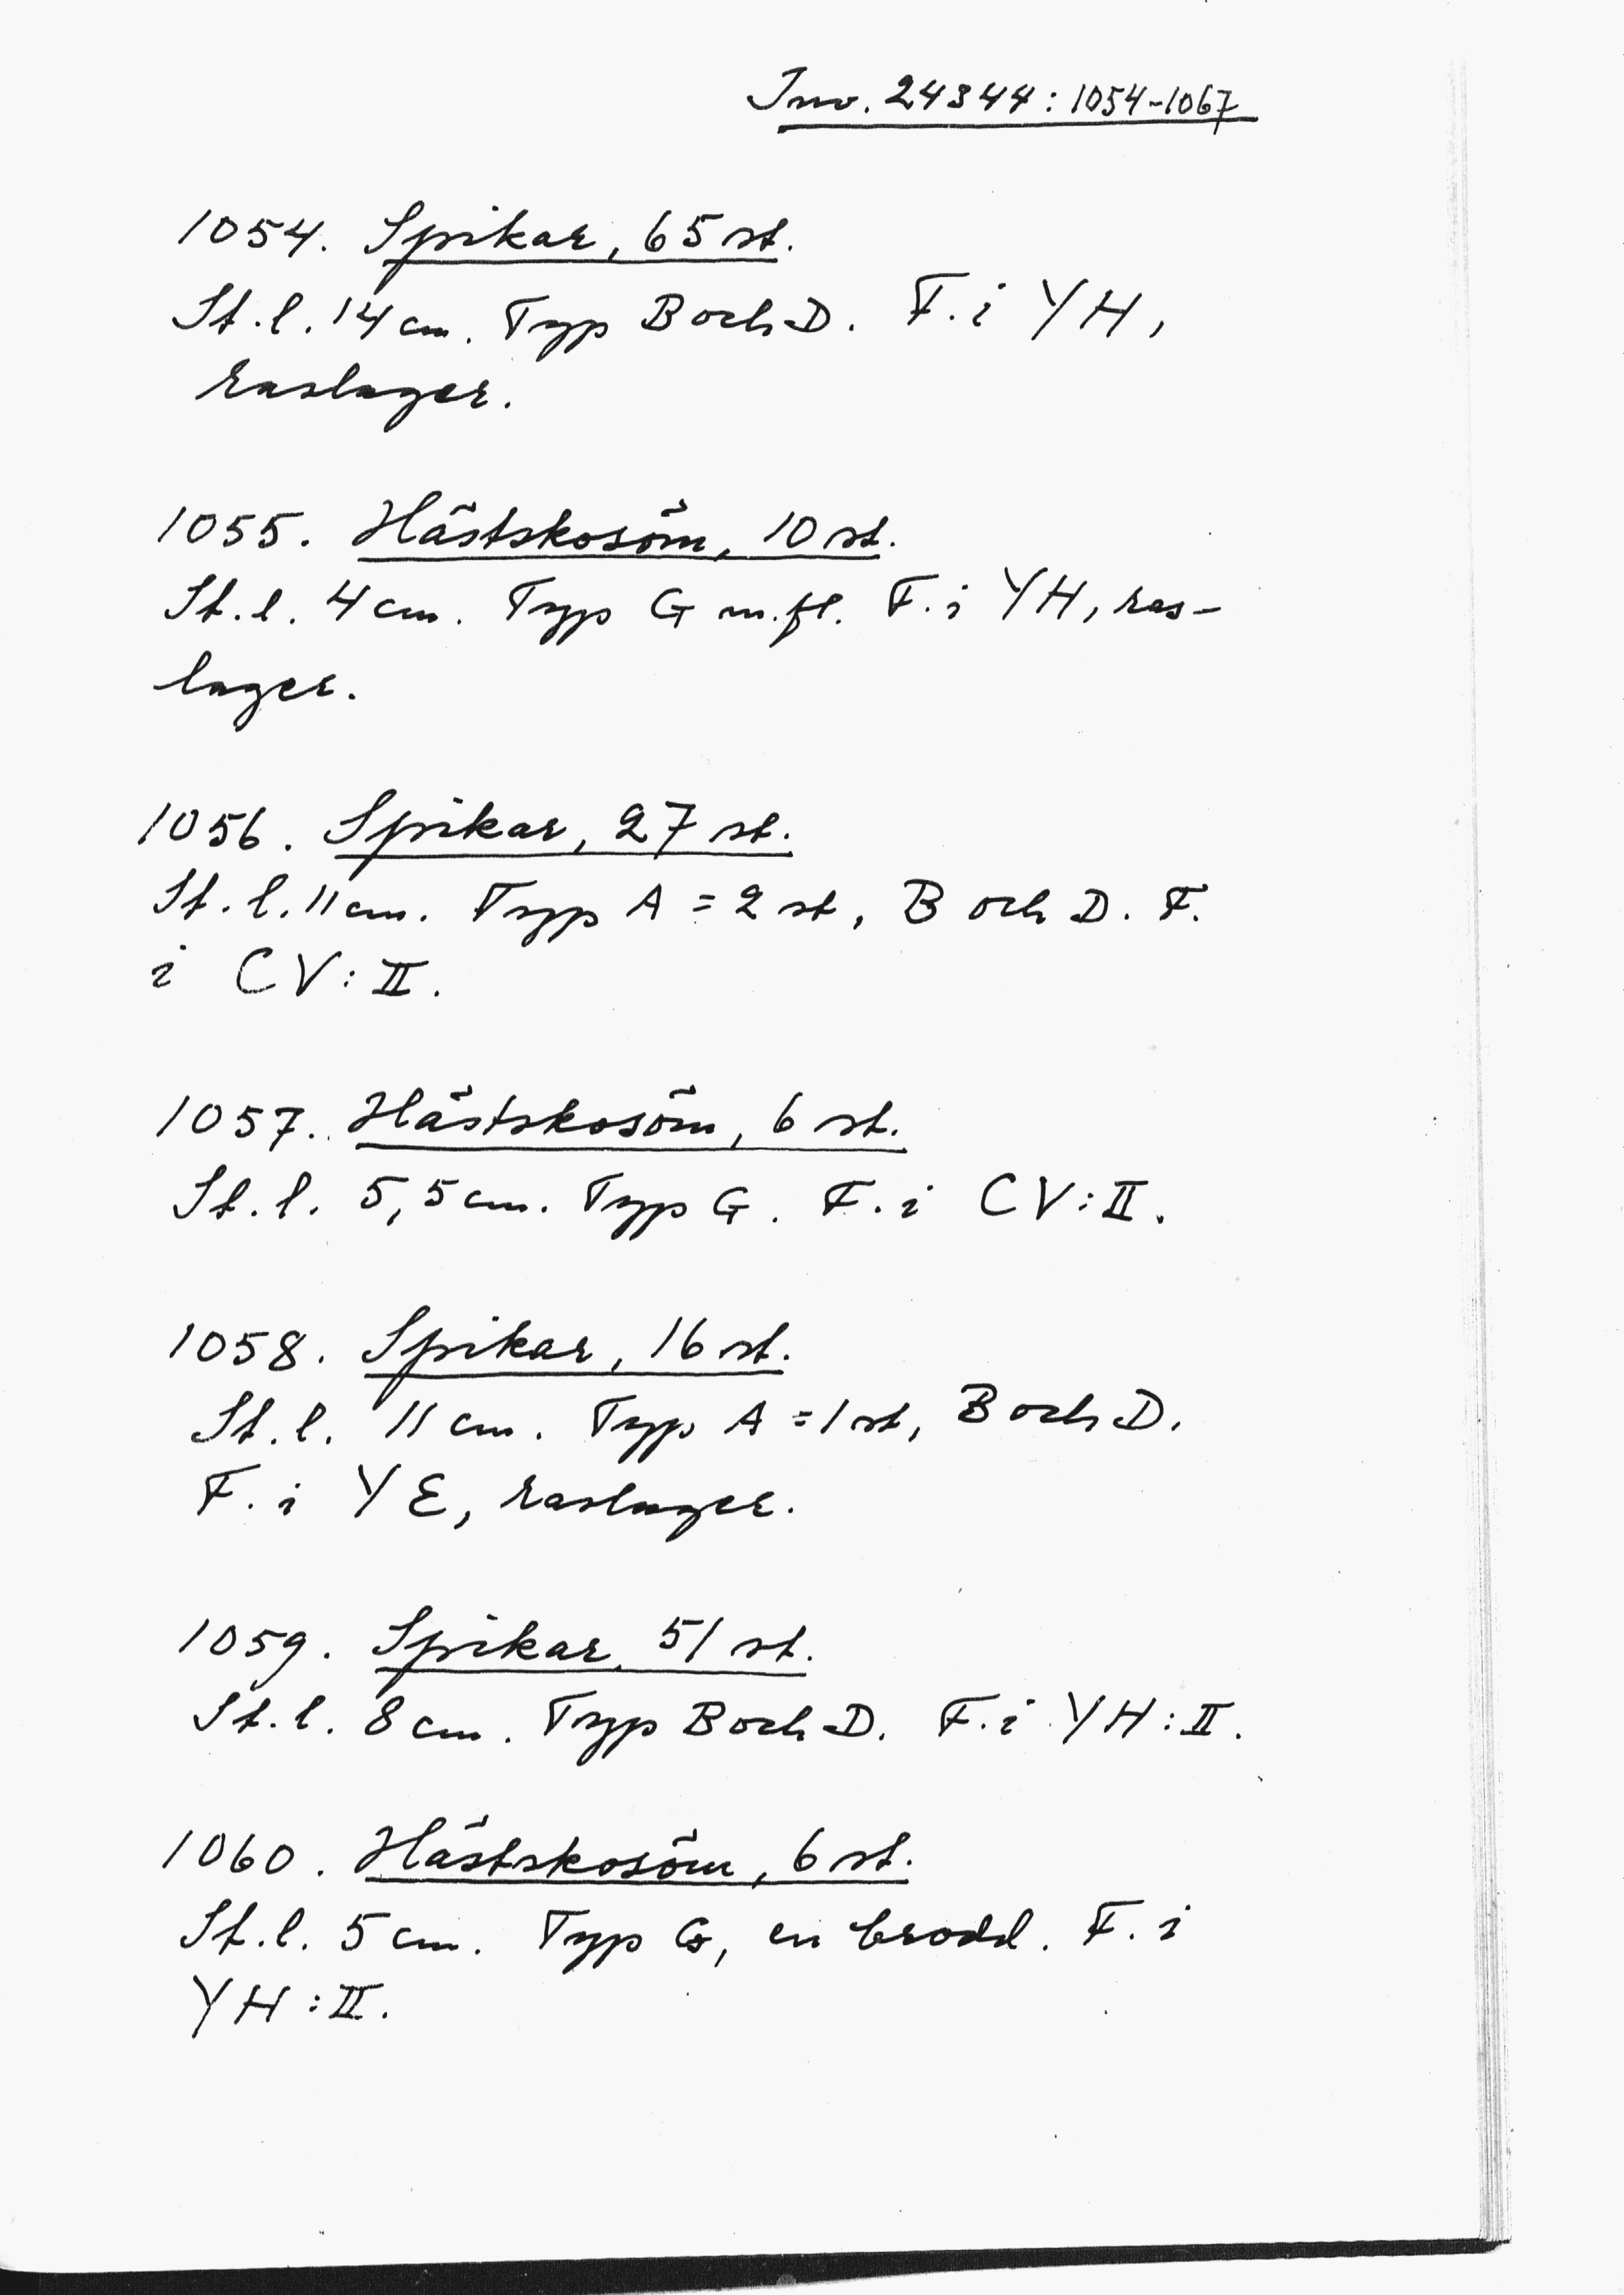 Inv. 24344:1054-1067
1054. Spikar, 65 st.
St.l. 14 cm. Typ B och D. F. i YH,
raslager.
1055. Hästskosöm, 10 st.
St.l. 4 cm. Typ G m.fl. F. i YH, ras-
lager.
1056. Spikar, 27 st.
St.l. 11 cm. Typ A = 2 st, B och D. F.
i CV:II.
1057. Hästskosöm, 6 st.
St.l. 5,5 cm. Typ G. F. i CV:II.
1058. Spikar, 16 st.
St.l. 11 cm. Typ A = 1 st, B och D.
F. i YE, raslager.
1059. Spikar, 51 st.
St.l. 8 cm. Typ B och D. F. i YH:II.
1060. Hästskosöm, 6 st.
St.l. 5 cm. Typ G, en brodd. F. i
YH:II.